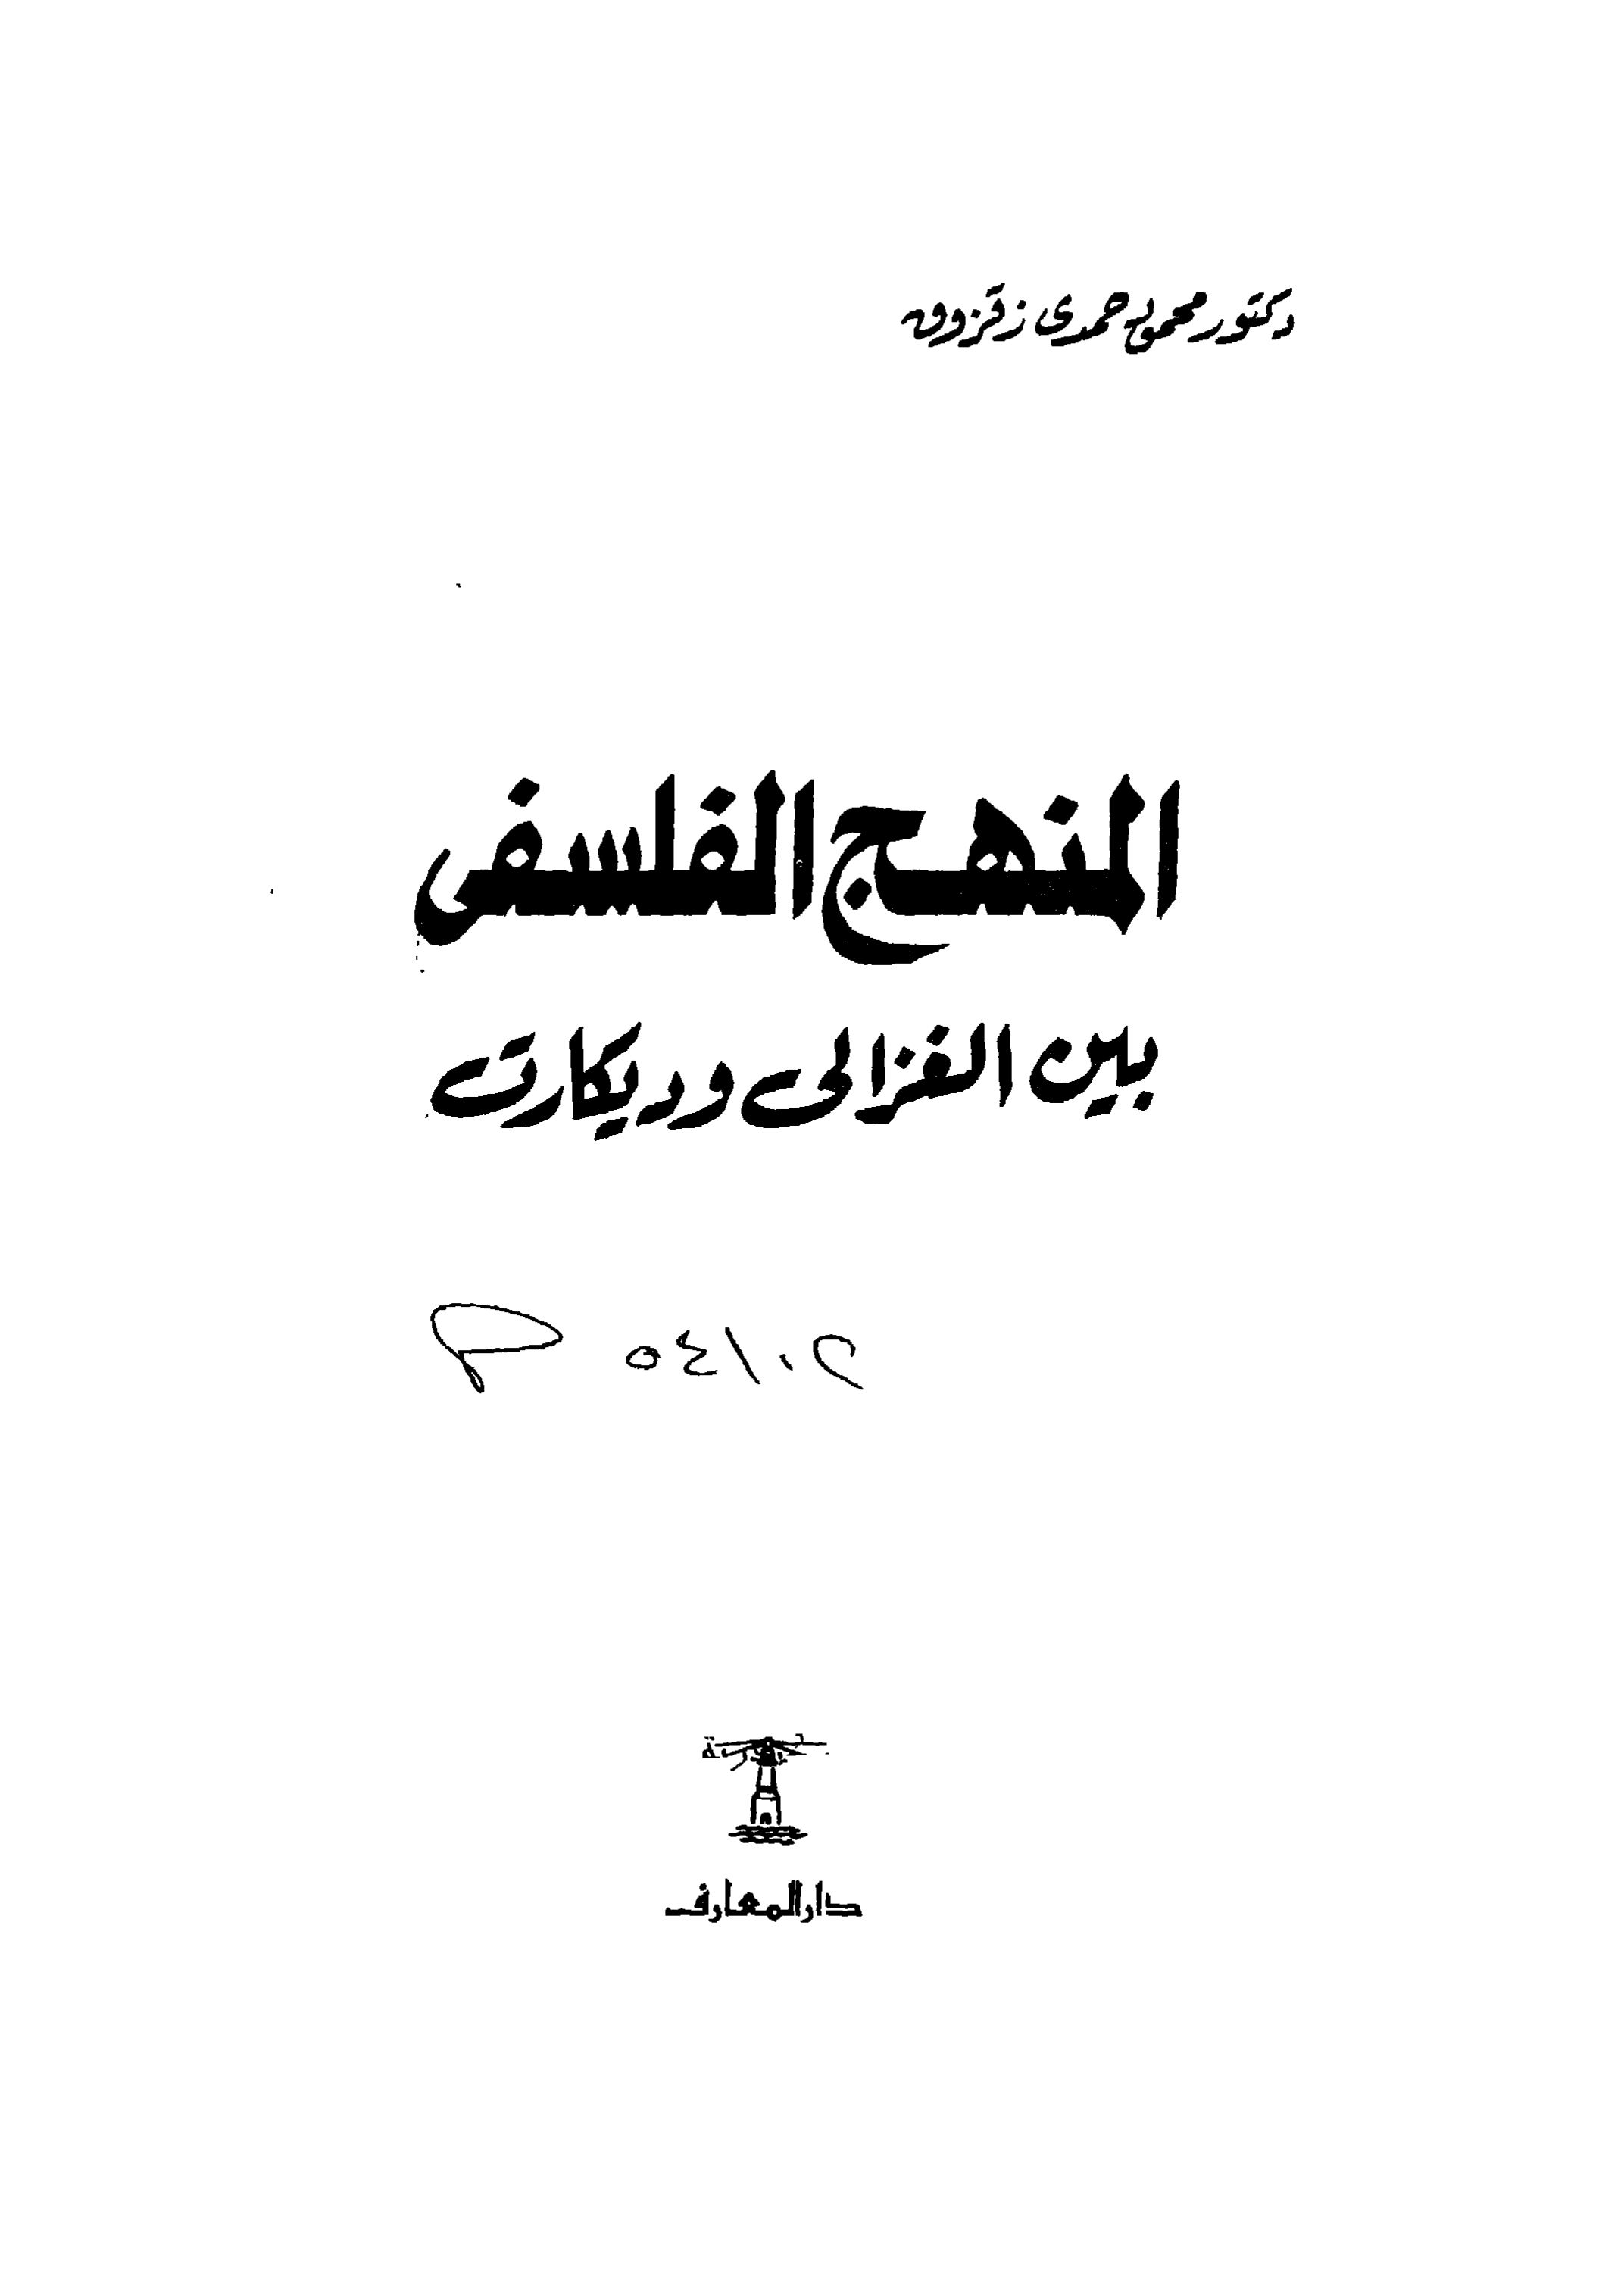 دكتور محمود حمدى زقزوق
المنهج الفلسفى
بين الغزالى وديكارت
٥٤١٠٢
دار المعارف